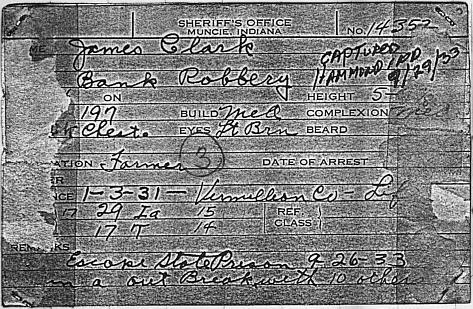 SHERIFF'S OFFICE
MUNCIE, INDIANA No. 14352
ME James Clark
CAPTURED
HAMMOND IND
9/29/33
Bank Robbery
ON HEIGHT 5-
197 BUILD Med COMPLEXION Med
Chest. EYES Lt Brn BEARD
ATION Farmer 3 DATE OF ARREST
R
CE 1-3-31- Vermillion Co-
17 29 Ia 15 REF.
17 T 14 CLASS
REM KS
Escape State Prison 9-26-33
in a out Break with 10 other